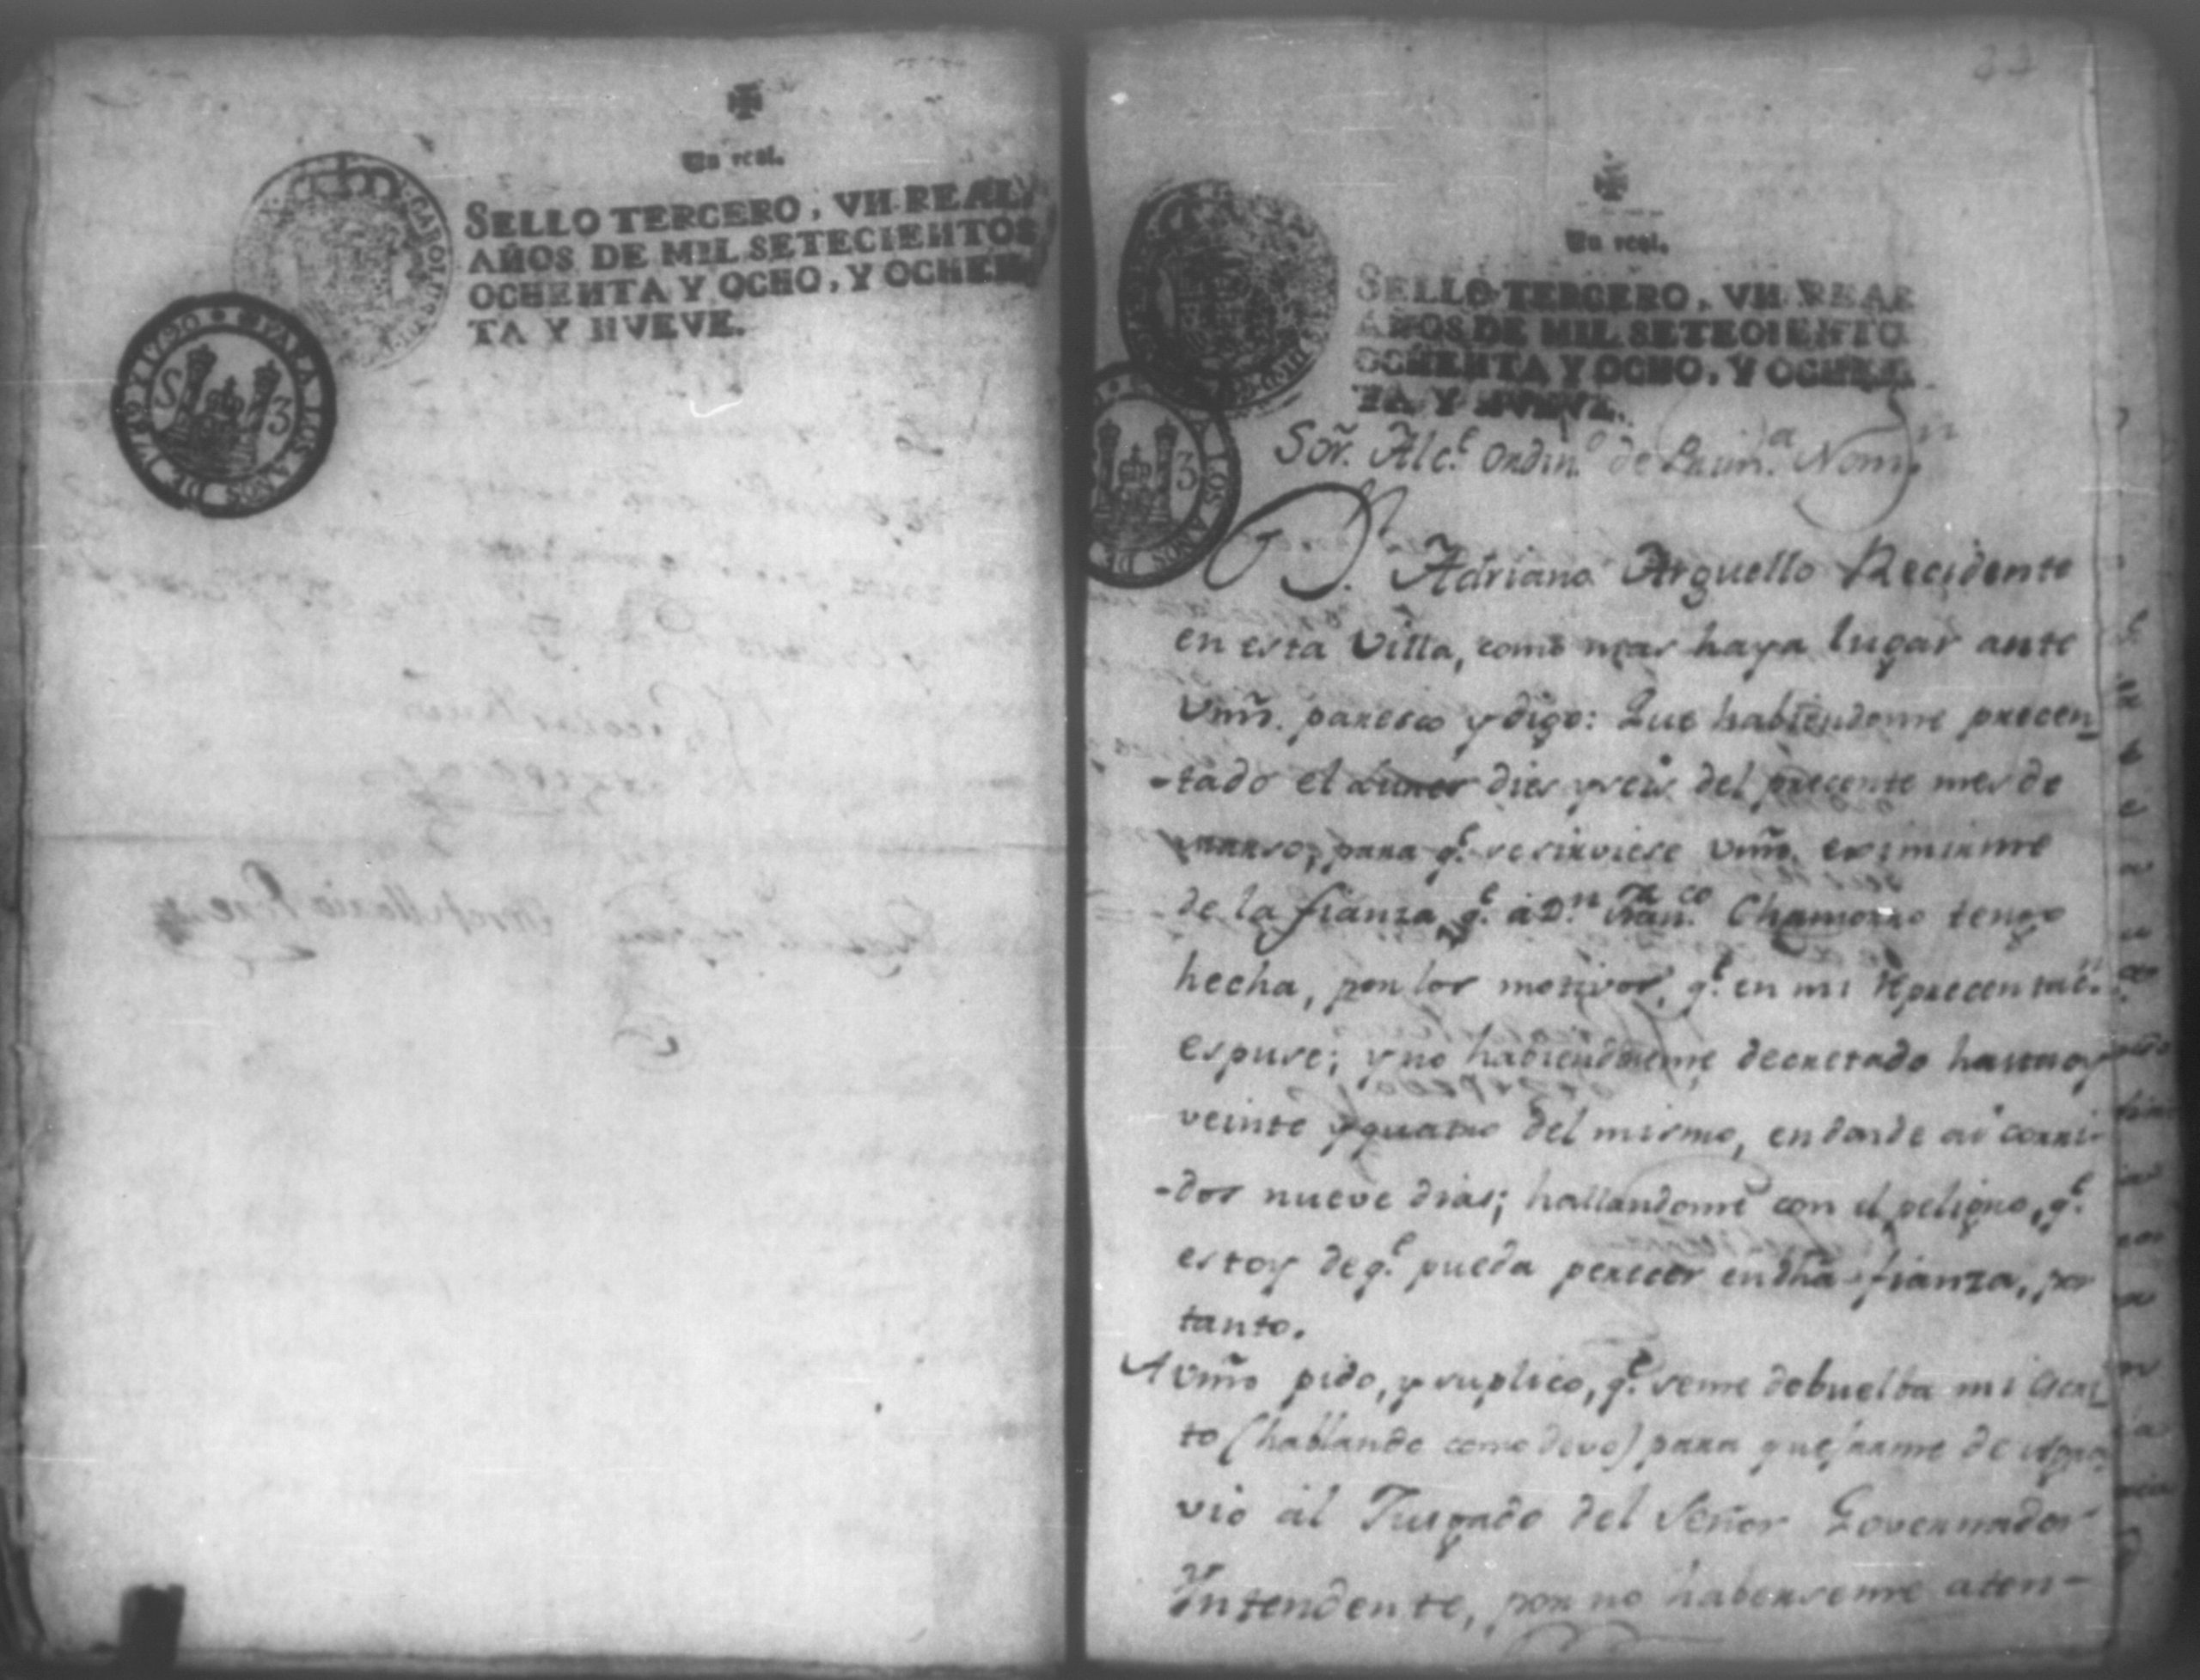 Un real.
SELLO TERCERO, VN REAL,
AÑOS DE MIL SETECIENTOS
OCHENTA Y OCHO, Y OCHEN
TA Y NVEVE.
PARA LOS AÑOS DE 1789 Y 1790
S 3
Un real.
SELLO TERCERO, VN REAL
AÑOS DE MIL SETECIENTO
OCHENTA Y OCHO, Y OCHEN
TA Y NVEVE.
3
Sōr. Alc.e Ordin.o de Prim.a Nom.n
D. Adriano Arguello Recidente
en esta Villa, como mas haya lugar ante
Vmd. paresco y digo: Que habiendome precen
-tado el Lunes dies y seis del precente mes de
marso, para q.e se sirviese Vmd. eximirme
de la fianza q.e à D.n Fran.co Chamorro tengo
hecha, por los motivos, q.e en mi Reprecentac.n
espuse; y no habiendoseme decretado hasta oy
veinte y quatro del mismo, en donde ai corri-
-dos nueve dias; hallandome con el peligro, q.e
estoy de q.e pueda perecer en dha fianza, por
tanto.
A Vmd pido, y suplico, q.e se me debuelba mi Escri
to (hablando como devo) para quejarme de Agra
vio al Jusgado del Señor Governador
Yntendente, por no haberseme aten-